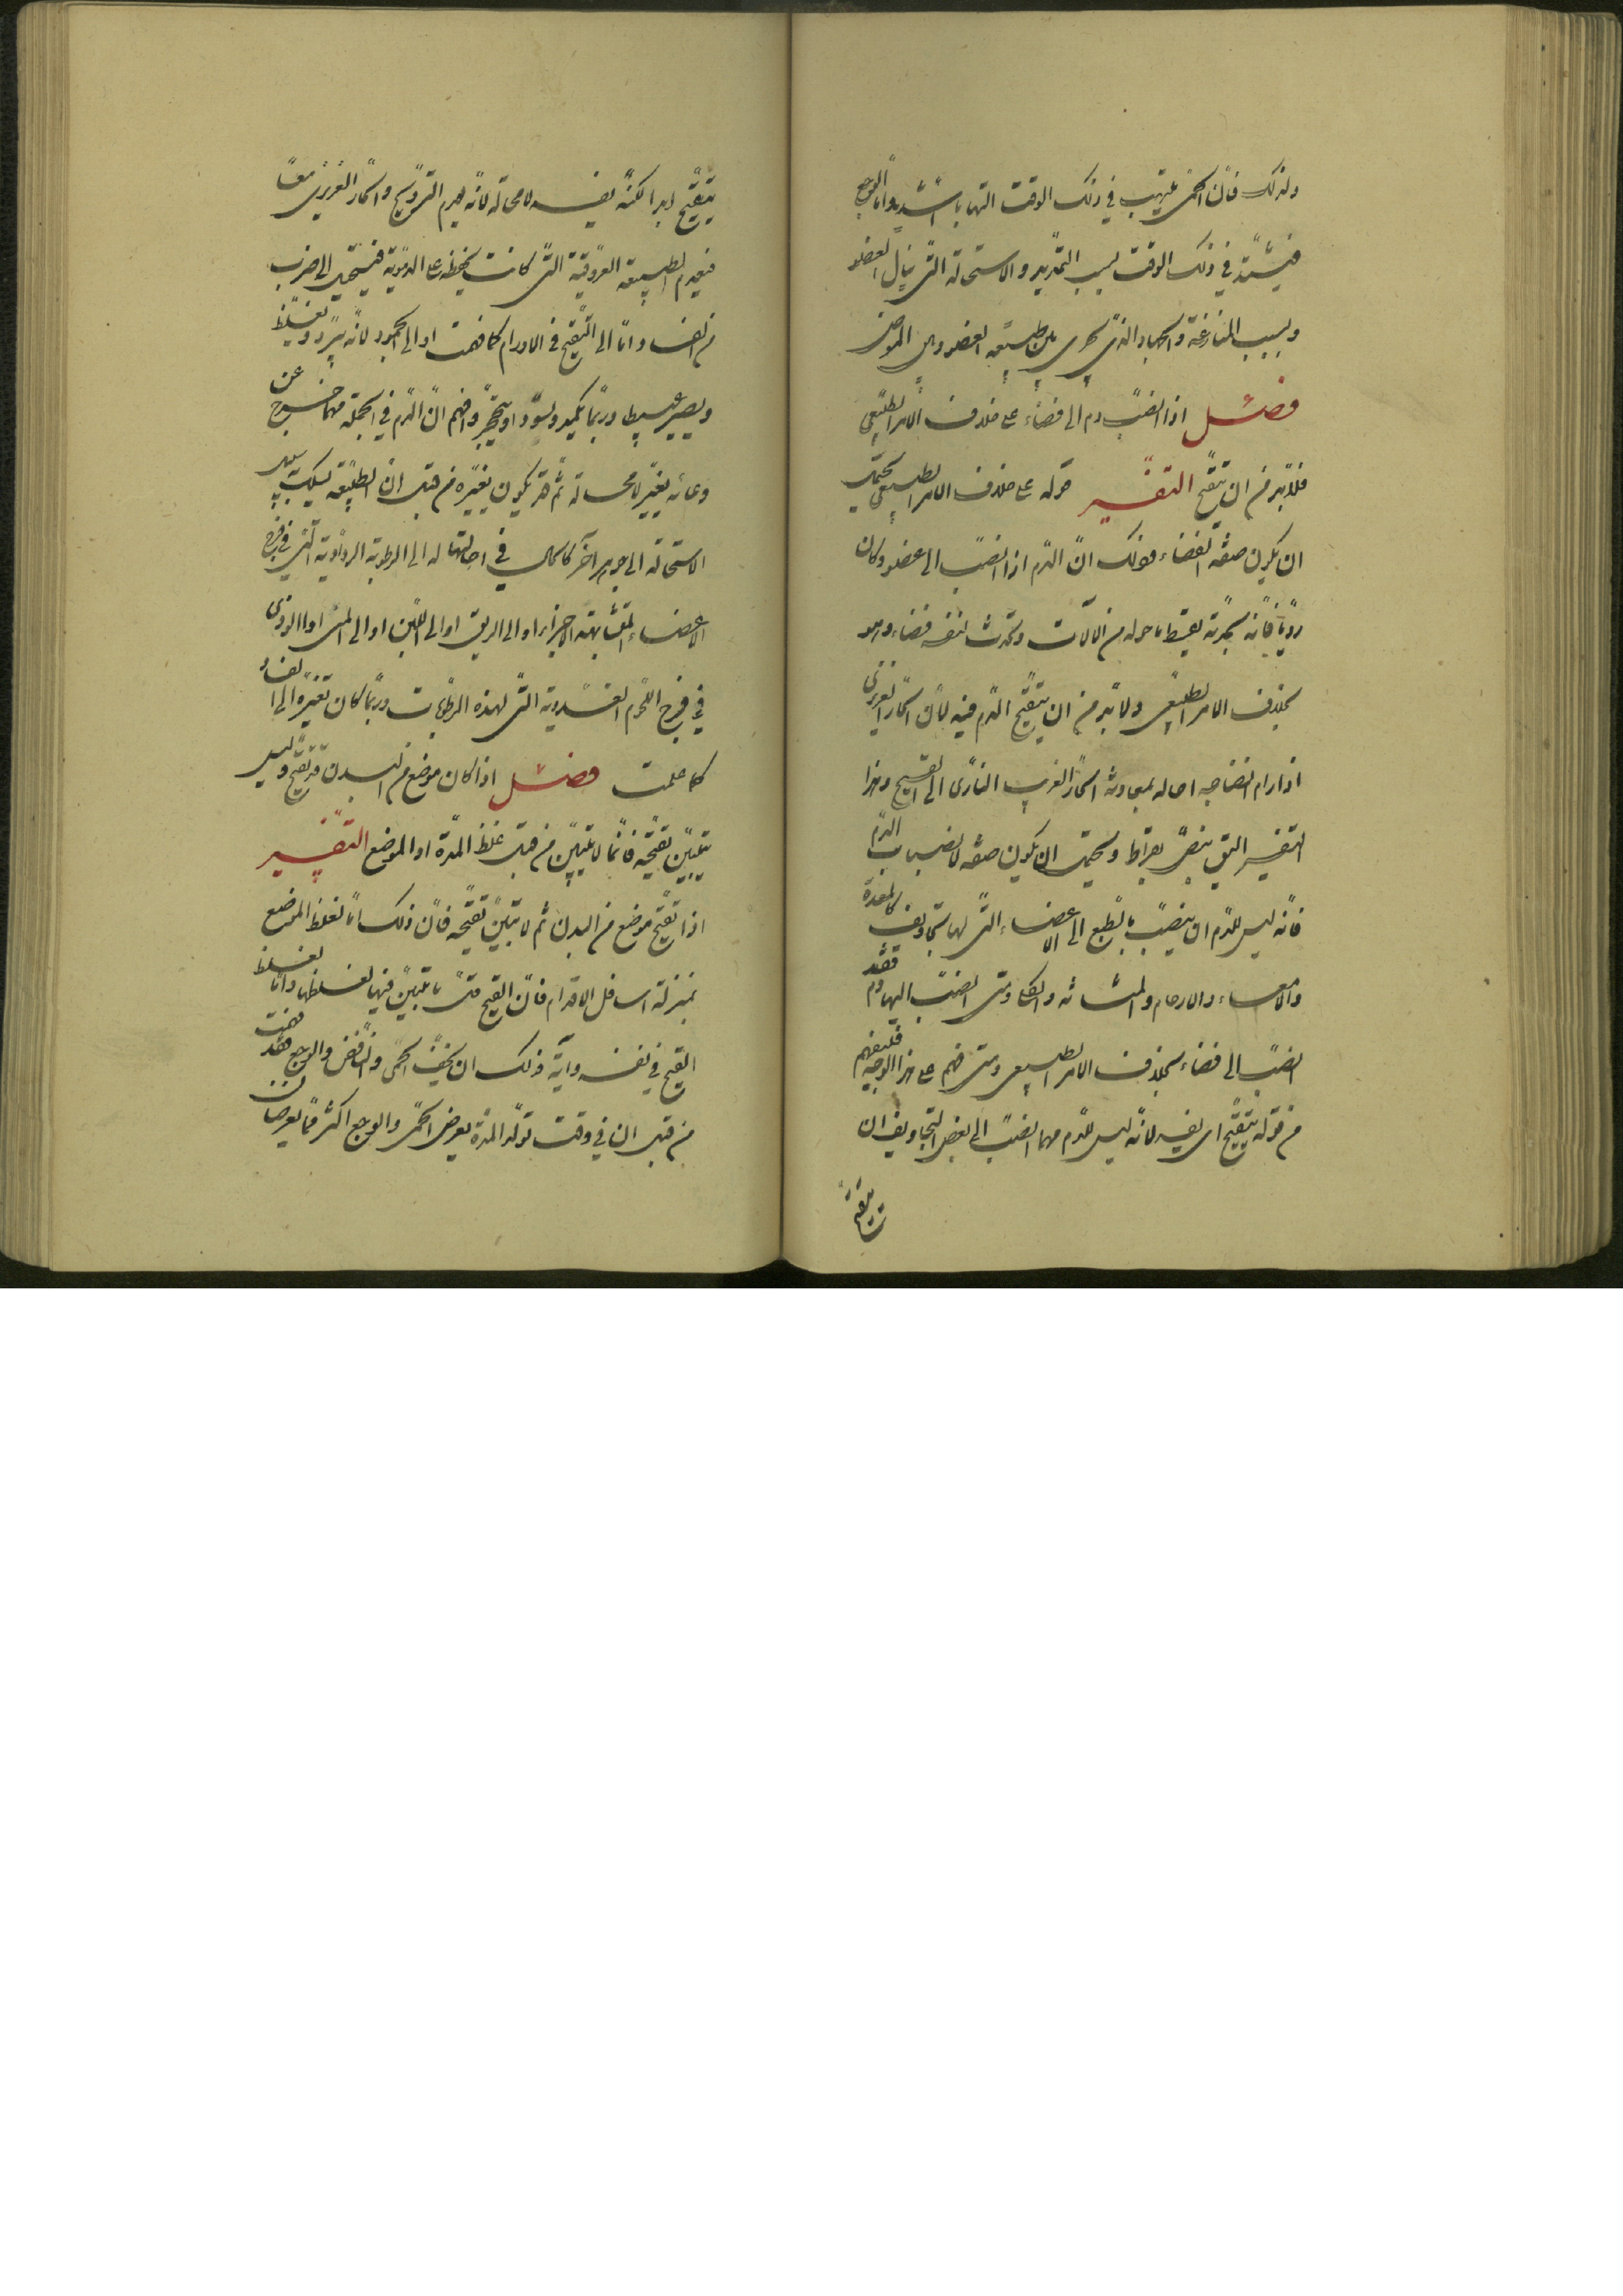 ولذلك فانّ الحمّى تلتهب في ذلك الوقت التهابا شديدا وامّا الوجع
فيشتدّ في ذلك الوقت بسبب التمديد والاستحالة التّى ينال العضو
وبسبب المنازعة والجهاد الذّى يجرى بين طبيعة العضو وبين المرض
فصل اذا انصبّ دم الى فضاء على خلاف الامر الطبيعى
فلابّد من ان يتقيّح التفسير قوله على خلاف الامر الطبيعى يحتمل
ان يكون صفة لفضاء وذلك انّ الدّم اذا انصبّ الى عضو وكان
رديّا فانّه بحدّته يقسط ما حوله من الآلات ويحدث لنفسه فضاء وهو
بخلاف الامر الطبيعى ولابّد من ان يتقيّح الدّم فيه لانّ الحارّ الغريزى
اذا رام انضاجه احاله بمعاونة الحارّ الغريب النارّى الى القيح وهذا
التفسير اليق بنصّ بقراط ويحتمل ان يكون صفة لانصباب الدّم
فانّه ليس للدّم ان ينصبّ بالطبع الى الاعضاء التّى لها تجاويف كالمعدة
والامعاء والارحام والمثانة والصدر ومتى انصبّ اليها دم فقد
انصبّ الى فضاء بخلاف الامر الطبيعى ومتى فهم على هذا الوجه فليفهم
من قوله يتقيّح اى يفسد لانّه ليس للدّم مهما انصبّ الى بعض التجاويف ان
يتقيّح
يتقيّح ابدا لكنّه يفسد لا محالة لانّه يعدم التروّيح والحارّ الغريزى معًا
فيعدم الطبيعة العروقية التّى كانت يحفظه على الدمّوية فيستحيل الى ضرب
من الفساد امّا الى التقيّح فى الاورام كما فهمت او الى الجمود لانّه يبرد ويغلظ
ويصير عبيط وربّما يكمد ويسوّد او يتحجّر وافهم انّ الدّم في الجملة مهما خرج عن
وعائه يغيّر لا محالة ثمّ قد يكون تغيّره من قبل انّ الطبيعة يسلك به سبيل
الاستحالة الى جوهر آخر كالحال في احالتها له الى الرطوبة الرذاذية التّى في فرج
الاعضاء المتشابهة الاجزاء او الى الريق او الى اللبن او الى المنى او الى الوذى
في فرج اللحوم الغددية التّى لهذه الرطوبات وربّما كان تغيّره الى الفساد
كما علمت فصل اذا كان موضع من البدن قد تقيّح وليس
يتبيّن تقيّحه فانّما لا يتبيّن من قبل غلظ المدّة او الموضع التفسير
اذا تقيّح موضع من البدن ثم لا يتبيّن تقيّحه فانّ ذلك امّا لغلظ الموضع
بمنزلة اسافل الاقدام فانّ القيح متى لا يتبيّن فيها لغلظها وامّا لغلظ
القيح في نفسه وآية ذلك ان يخفّ الحمّى والنّافض والوجع فقد
من قبل ان في وقت تولّد المدّة يعرض الحمّى والوجع اكثر ممّا يعرضان